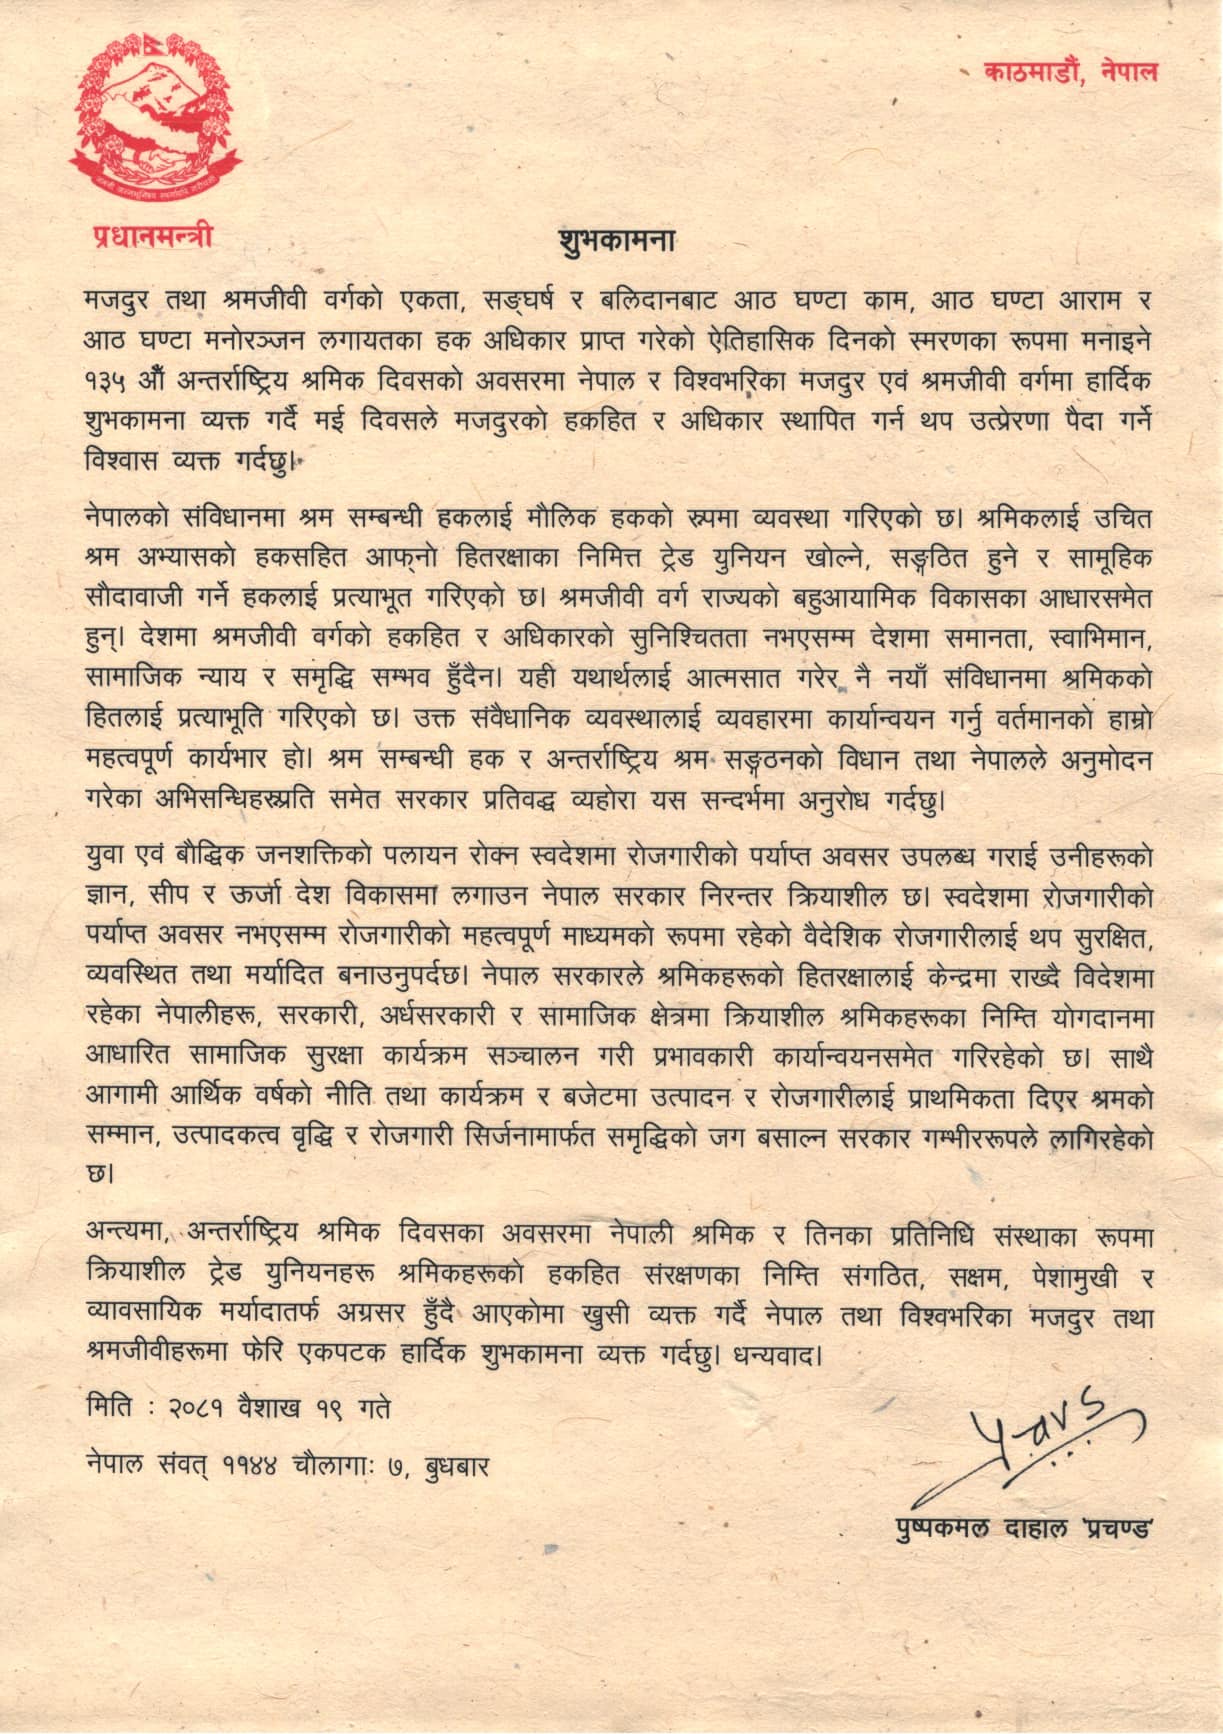 काठमाडौं, नेपाल
प्रधानमन्त्री
शुभकामना
मजदुर तथा श्रमजीवी वर्गको एकता, सङ्घर्ष र बलिदानबाट आठ घण्टा काम, आठ घण्टा आराम र
आठ घण्टा मनोरञ्जन लगायतका हक अधिकार प्राप्त गरेको ऐतिहासिक दिनको स्मरणका रूपमा मनाइने
१३५ औँ अन्तर्राष्ट्रिय श्रमिक दिवसको अवसरमा नेपाल र विश्वभरिका मजदुर एवं श्रमजीवी वर्गमा हार्दिक
शुभकामना व्यक्त गर्दै मई दिवसले मजदुरको हकहित र अधिकार स्थापित गर्न थप उत्प्रेरणा पैदा गर्ने
विश्वास व्यक्त गर्दछु।
नेपालको संविधानमा श्रम सम्बन्धी हकलाई मौलिक हकको रुपमा व्यवस्था गरिएको छ। श्रमिकलाई उचित
श्रम अभ्यासको हकसहित आफ्‌नो हितरक्षाका निमित्त ट्रेड युनियन खोल्ने, सङ्गठित हुने र सामूहिक
सौदावाजी गर्ने हकलाई प्रत्याभूत गरिएको छ। श्रमजीवी वर्ग राज्यको बहुआयामिक विकासका आधारसमेत
हुन्। देशमा श्रमजीवी वर्गको हकहित र अधिकारको सुनिश्चितता नभएसम्म देशमा समानता, स्वाभिमान,
सामाजिक न्याय र समृद्धि सम्भव हुँदैन। यही यथार्थलाई आत्मसात गरेर नै नयाँ संविधानमा श्रमिकको
हितलाई प्रत्याभूति गरिएको छ। उक्त संवैधानिक व्यवस्थालाई व्यवहारमा कार्यान्वयन गर्नु वर्तमानको हाम्रो
महत्वपूर्ण कार्यभार हो। श्रम सम्बन्धी हक र अन्तर्राष्ट्रिय श्रम सङ्गठनको विधान तथा नेपालले अनुमोदन
गरेका अभिसन्धिहरुप्रति समेत सरकार प्रतिवद्ध व्यहोरा यस सन्दर्भमा अनुरोध गर्दछु।
युवा एवं बौद्धिक जनशक्तिको पलायन रोक्न स्वदेशमा रोजगारीको पर्याप्त अवसर उपलब्ध गराई उनीहरूको
ज्ञान, सीप र ऊर्जा देश विकासमा लगाउन नेपाल सरकार निरन्तर क्रियाशील छ। स्वदेशमा रोजगारीको
पर्याप्त अवसर नभएसम्म रोजगारीको महत्वपूर्ण माध्यमको रूपमा रहेको वैदेशिक रोजगारीलाई थप सुरक्षित,
व्यवस्थित तथा मर्यादित बनाउनुपर्दछ। नेपाल सरकारले श्रमिकहरूको हितरक्षालाई केन्द्रमा राख्दै विदेशमा
रहेका नेपालीहरू, सरकारी, अर्धसरकारी र सामाजिक क्षेत्रमा क्रियाशील श्रमिकहरूका निम्ति योगदानमा
आधारित सामाजिक सुरक्षा कार्यक्रम सञ्चालन गरी प्रभावकारी कार्यान्वयनसमेत गरिरहेको छ। साथै
आगामी आर्थिक वर्षको नीति तथा कार्यक्रम र बजेटमा उत्पादन र रोजगारीलाई प्राथमिकता दिएर श्रमको
सम्मान, उत्पादकत्व वृद्धि र रोजगारी सिर्जनामार्फत समृद्धिको जग बसाल्न सरकार गम्भीररूपले लागिरहेको
छ।
अन्त्यमा, अन्तर्राष्ट्रिय श्रमिक दिवसका अवसरमा नेपाली श्रमिक र तिनका प्रतिनिधि संस्थाका रूपमा
क्रियाशील ट्रेड युनियनहरू श्रमिकहरूको हकहित संरक्षणका निम्ति संगठित, सक्षम, पेशामुखी र
व्यावसायिक मर्यादातर्फ अग्रसर हुँदै आएकोमा खुसी व्यक्त गर्दै नेपाल तथा विश्वभरिका मजदुर तथा
श्रमजीवीहरूमा फेरि एकपटक हार्दिक शुभकामना व्यक्त गर्दछु। धन्यवाद।
मिति : २०८१ वैशाख १९ गते
नेपाल संवत् ११४४ चौलागाः ७, बुधबार
पुष्पकमल दाहाल 'प्रचण्ड'